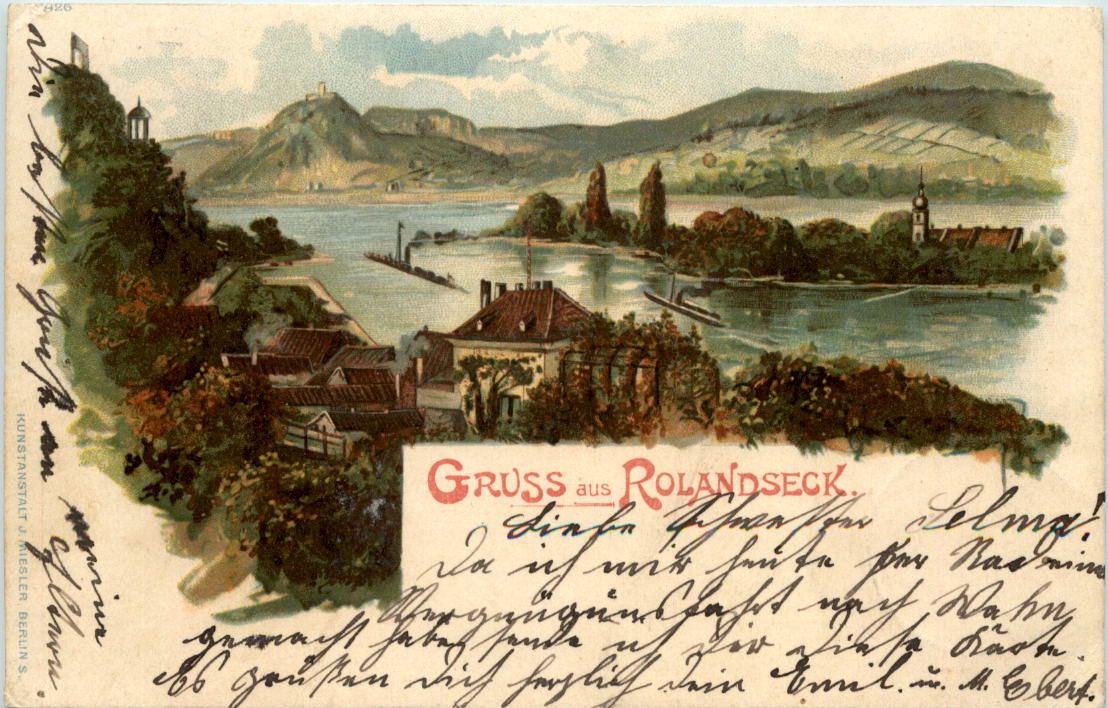 826
GRUSS aus ROLANDSECK.
Liebe Schwester Selma!
Da ich mir heute per Rad eine
Vergnügunsfahrt nach Wahn
gemacht habe, sende ich dir diese Karte.
Es grüßen dich herzlich dein Emil. u. M. Ebert.
Die besten Grüße an meine
Eltern.
KUNSTANSTALT J. MIESLER BERLIN S.